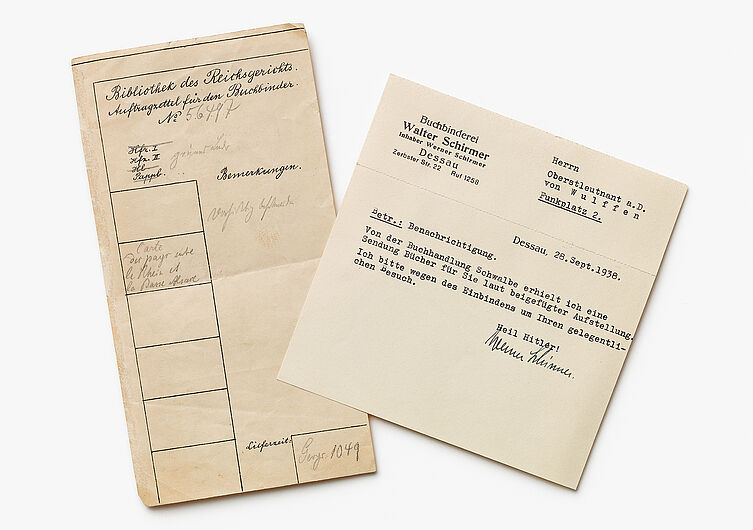 Bibliothek des Reichsgerichts.
Auftragzettel für den Buchbinder.
No 56497
Hfz. I
Hfz. II
Hl
Suppl.
Bemerkungen.
Carte
des pays entre
le Rhin et
la Basse
Lieferzeit:
1049
Buchbinderei
Walter Schirmer
Inhaber Werner Schirmer
Dessau
Zerbster Str. 22 Ruf 1258
Herrn
Oberstleutnant a.D.
von Wulffen
Funkplatz 2.
Dessau, 28.Sept.1938.
Betr.: Benachrichtigung.
Von der Buchhandlung Schwalbe erhielt ich eine
Sendung Bücher für Sie laut beigefügter Aufstellung.
Ich bitte wegen des Einbindens um Ihren gelegentli-
chen Besuch.
Heil Hitler!
Werner Schirmer.